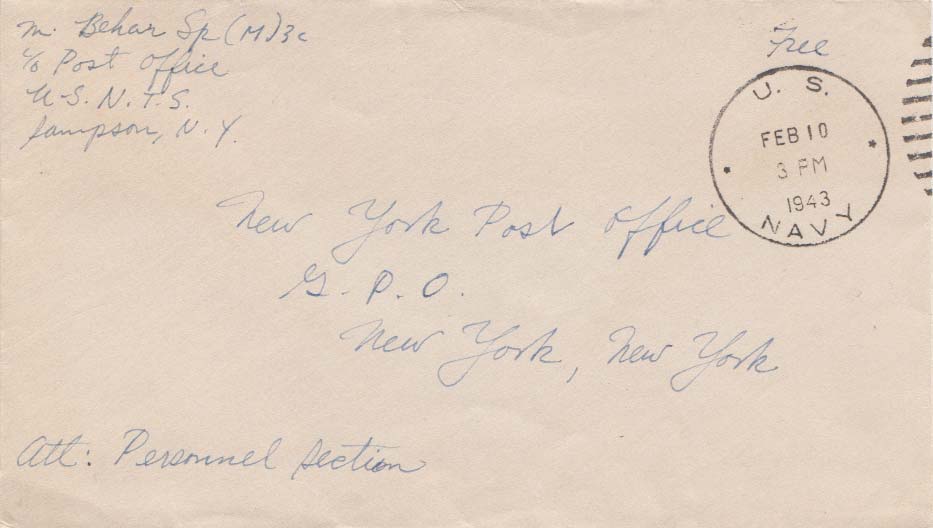 M. Behar Sp (M) 3c
c/o Post Office
U.S. N.T.S.
Sampson, N.Y.
Free
U. S.
FEB 10
3 PM
1943
NAVY
New York Post Office
G. P. O.
New York, New York
Att: Personnel Section